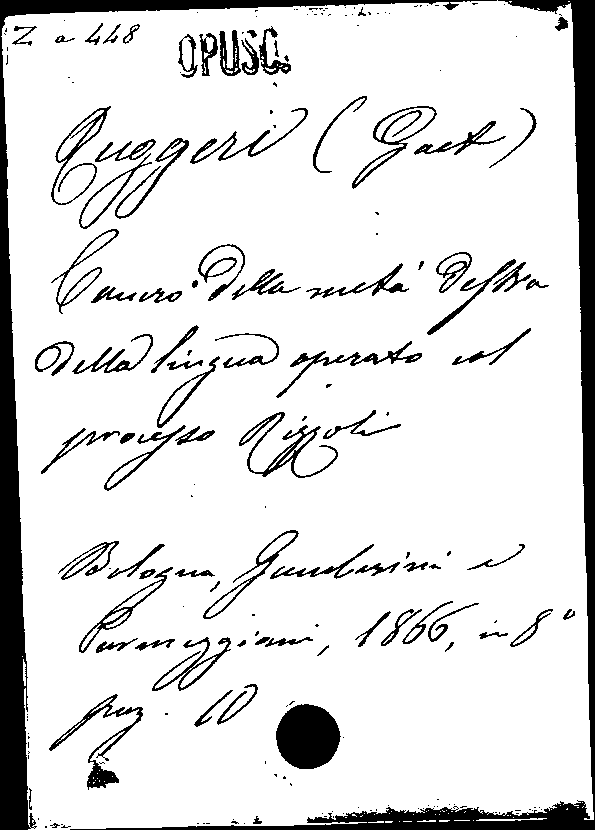 Z a 448
OPUSC.
Ruggeri (Gaet)
Cancro della metà destra
della lingua operato col
processo Rizzoli
Bologna, Gamberini e
Parmeggiani, 1866, in 8°
pag. 10